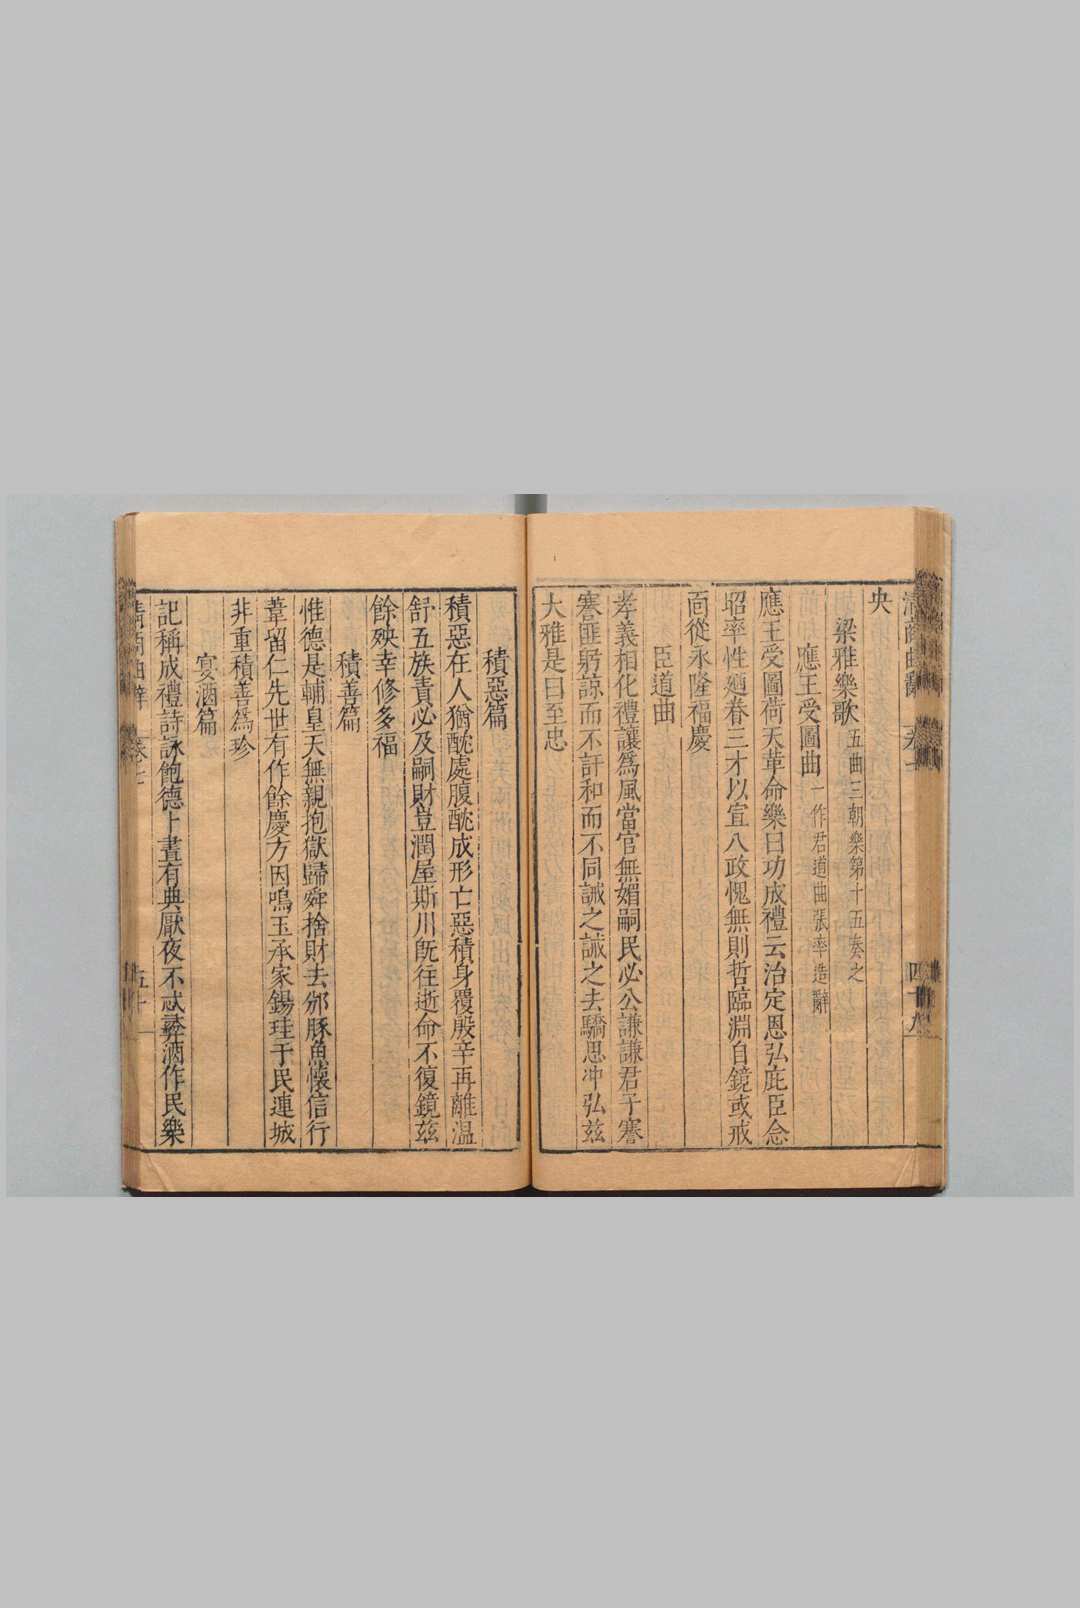 央
梁雅樂歌五曲三朝樂第十五奏之
應王受圖曲一作君道曲張率造辭
應王受圖荷天革命樂曰功成禮云治定恩弘庇臣念
昭率性廼眷三才以宣八政愧無則哲臨淵自鏡或戒
面從永隆福慶
臣道曲
孝義相化禮讓爲風當官無媚嗣民必公謙謙君子謇
謇匪躬諒而不訐和而不同誡之誡之去驕思冲弘兹
大雅是曰至忠
積惡篇
積惡在人猶酖處腹酖成形亡惡積身覆殷辛再離温
舒五族責必及嗣財豈潤屋斯川旣往逝命不復鏡兹
餘殃幸修多福
積善篇
惟德是輔皇天無親抱獄歸舜捨財去邠豚魚懷信行
葦留仁先世有作餘慶方因鳴玉承家錫珪于民連城
非重積善爲珍
宴酒篇
記稱成禮詩詠飽德卜晝有典厭夜不忒彝酒作民樂